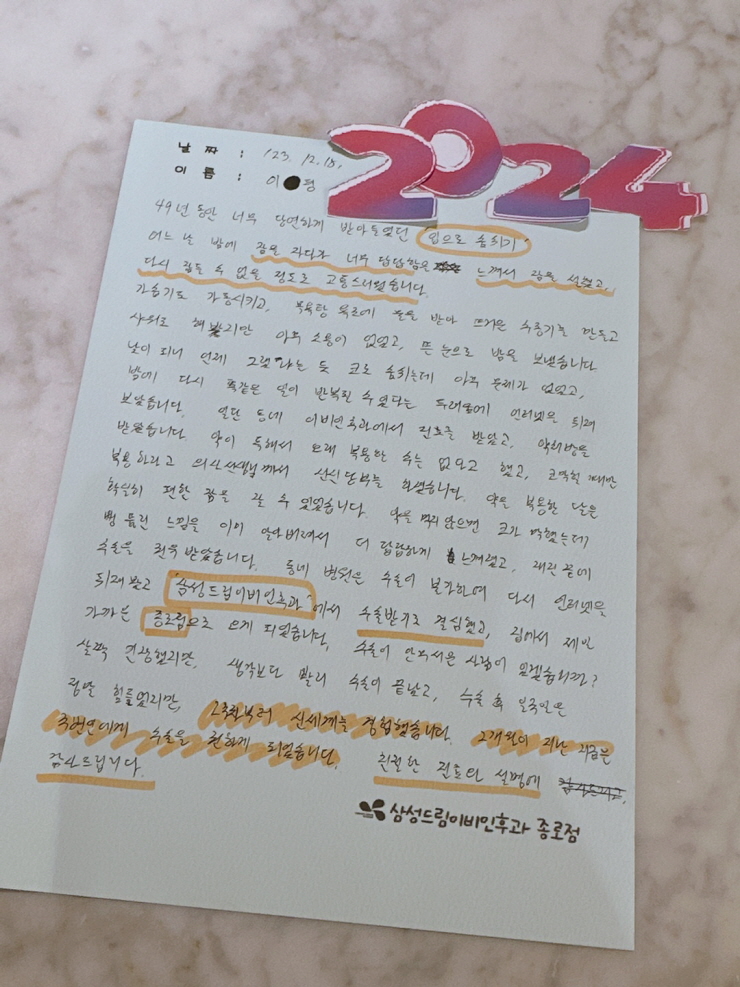 2024
날 짜 : '23. 12. 15.
이 름 : 이●평
49년 동안 너무 당연하게 받아들였던 '입으로 숨쉬기'
어느 날 밤에 잠을 자다가 너무 답답함을 느껴서 잠을 설쳤고,
다시 잠들 수 없을 정도로 고통스러웠습니다.
가습기도 가동시키고, 목욕탕 욕조에 물을 받아 뜨거운 수증기를 만들고
샤워로 해봤지만 아무 소용이 없었고, 뜬 눈으로 밤을 보냈습니다
낮이 되니 언제 그랬냐는 듯 코로 숨쉬는데 아무 문제가 없었고,
밤에 다시 똑같은 일이 반복될 수 있다는 두려움에 인터넷을 뒤져
보았습니다. 일단 동네 이비인후과에서 진료를 받았고, 약처방을
받았습니다. 약이 독해서 오래 복용할 수는 없다고 했고, 코막힐 때만
복용하라고 의사선생님께서 신신당부를 하셨습니다. 약을 복용한 날은
확실히 편한 잠을 잘 수 있었습니다. 약을 먹지 않으면 코가 막혔는데
뻥 뚫린 느낌을 이미 알아버려서 더 답답하게 느껴졌고, 때문 끝에
수술을 권유 받았습니다. 동네 병원은 수술이 불가하여 다시 인터넷을
뒤져보고 '삼성드림이비인후과'에서 수술받기로 결심했고, 집에서 제일
가까운 종로점으로 오게 되었습니다. 수술이 안무서운 사람이 있겠습니까?
살짝 긴장했지만, 생각보다 빨리 수술이 끝났고, 수술 후 일주일은
정말 힘들었지만, 2주차부터 신세계를 경험했습니다. 2개월이 지난 지금은
주변인에게 수술을 권하게 되었습니다. 친절한 진료와 설명에
감사드립니다.
삼성드림이비인후과 종로점